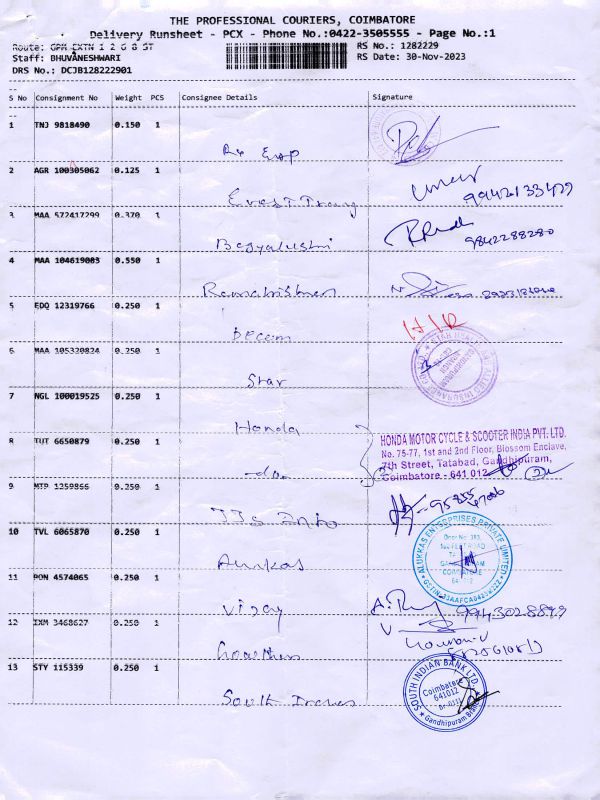 THE PROFESSIONAL COURIERS, COIMBATORE
Delivery Runsheet - PCX - Phone No.:0422-3505555 - Page No.:1
Route: GPM EXTN 1 2 6 8 ST
RS No.: 1282229
Staff: BHUVANESHWARI
RS Date: 30-Nov-2023
DRS No.: DCJB128222901
S No Consignment No Weight PCS Consignee Details Signature
1 TNJ 9818490 0.150 1
2 AGR 100305062 0.125 1
9942133479
3 MAA 572417299 0.370 1
9842288280
Bagyalushmi
4 MAA 104619083 0.550 1
Ramakrishnan
5 EDQ 12319766 0.250 1
H/R
6 MAA 105320824 0.250 1
Star
7 NGL 100019525 0.250 1
Honda
HONDA MOTOR CYCLE & SCOOTER INDIA PVT. LTD.
No. 75-77, 1st and 2nd Floor, Blossom Enclave,
7th Street, Tatabad, Gandhipuram,
Coimbatore - 641 012
8 TUT 6650879 0.250 1
-do-
9 MTP 1259866 0.250 1
10 TVL 6065870 0.250 1
ALUKKAS ENTERPRISES PRIVATE LIMITED
COIMBATORE
641 012
11 PON 4574065 0.250 1
Vijay
12 IXM 3468627 0.250 1
13 STY 115339 0.250 1
South Indian
SOUTH INDIAN BANK LTD.
Coimbatore
641012
Gandhipuram Branch